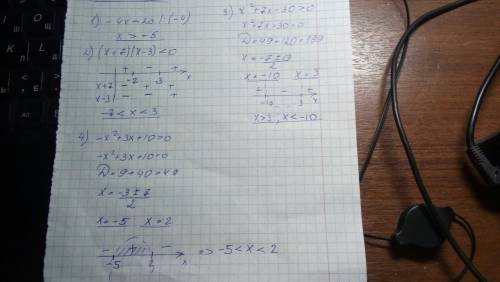 1) -4x - 20 | : (-4)
x > -5
2) (x+7)(x-3) < 0
+ - +
-7 3 x
x+7 - + +
x-3 - - +
-7 < x < 3
3) x²+7x-30>0
x²+7x-30=0
D=49+120=169
x = -7±13
2
x=-10 x=3
+ - +
-10 3 x
x>3, x<-10
4) -x²+3x+10>0
-x²+3x+10=0
D=9+40=49
x = -3±7
2
x=-5 x=2
- + -
-5 2 x
=> -5 < x < 2